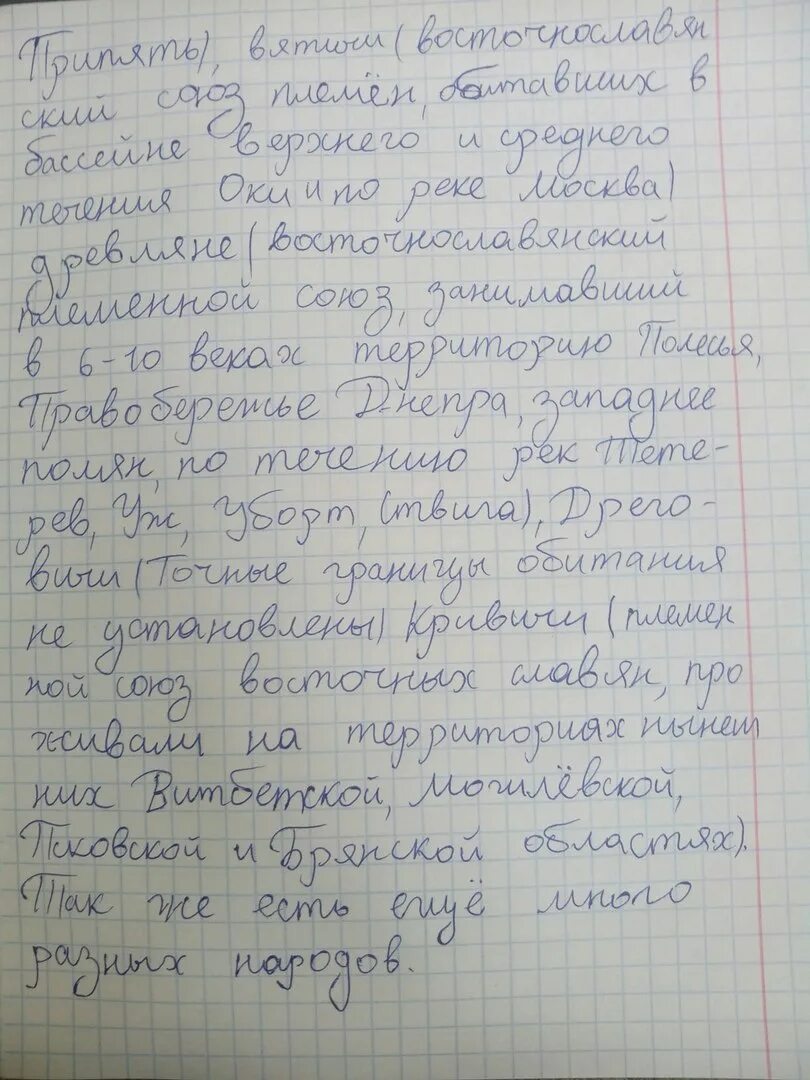 Припять), вятичи (восточнославян
ский союз племён, обитавших в
бассейне верхнего и среднего
течения Оки и по реке Москва)
древляне (восточнославянский
племенной союз, занимавший
в 6-10 веках территорию Полесья,
Правобережье Днепра, западнее
полян, по течению рек Тете-
рев, Уж, Уборт, Ствига), Дрего-
вичи (Точные границы обитания
не установлены) Кривичи (племен
ной союз восточных славян, про
живали на территориях нынеш
них Витбетской, Могилёвской,
Псковской и Брянской областях).
Так же есть ещё много
разных народов.